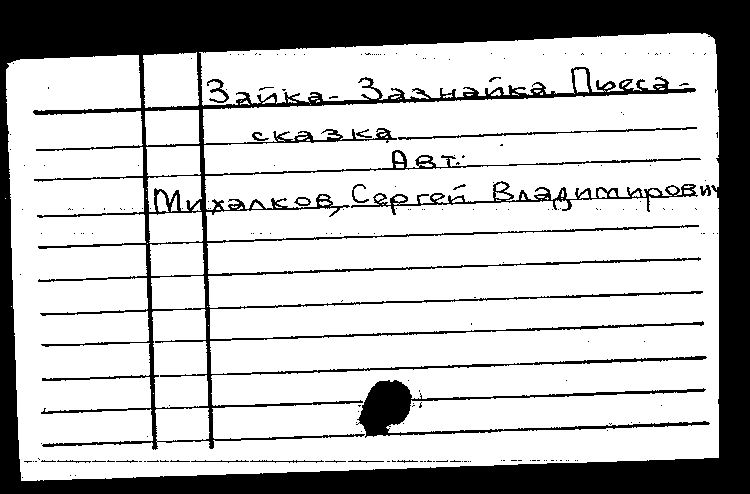 Зайка-Зазнайка. Пьеса-
сказка
Авт.:
Михалков, Сергей Владимирович